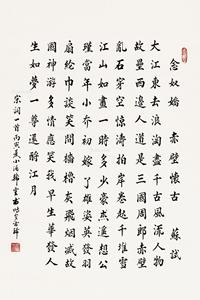 念奴嬌 赤壁懷古 蘇軾
大江東去浪淘盡千古風流人物
故壘西邊人道是三國周郎赤壁
亂石穿空驚濤拍岸卷起千堆雪
江山如畫一時多少豪杰遙想公
瑾當年小喬初嫁了雄姿英發羽
扇綸巾談笑間檣櫓灰飛烟滅故
國神游多情應笑我早生華發人
生如夢一尊還酹江月
宋詞一首丙寅夏